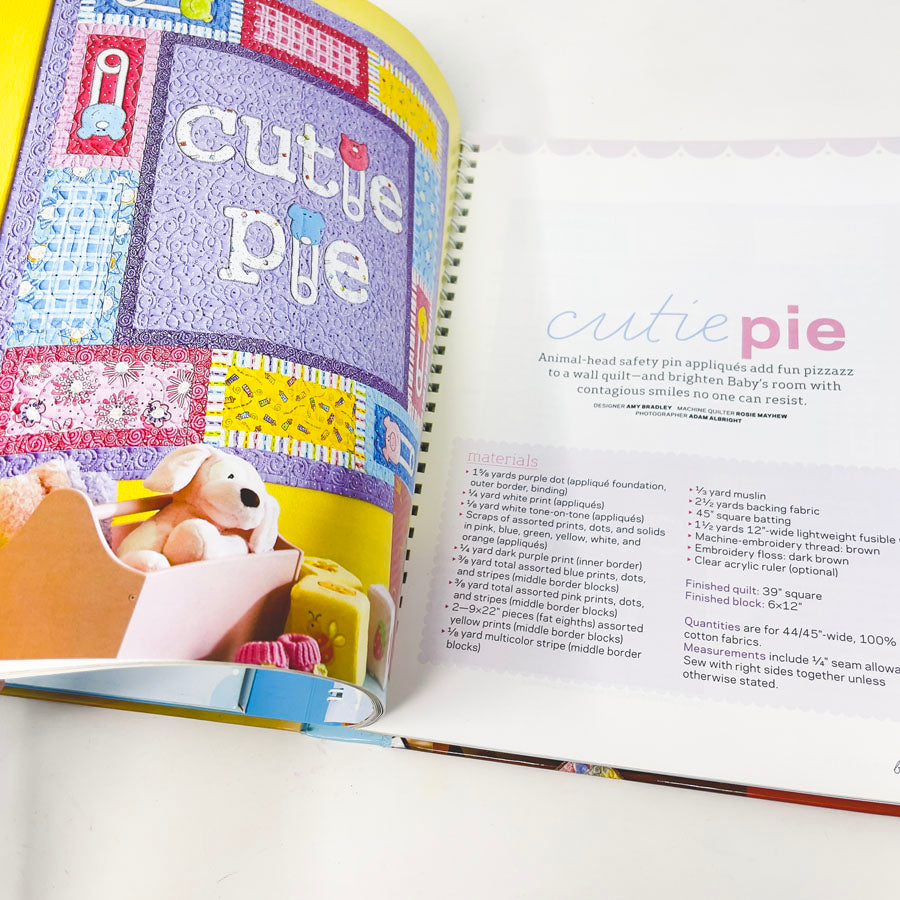 cutie
pie
cutie pie
Animal-head safety pin appliqués add fun pizzazz
to a wall quilt—and brighten Baby's room with
contagious smiles no one can resist.
DESIGNER AMY BRADLEY MACHINE QUILTER ROSIE MAYHEW
PHOTOGRAPHER ADAM ALBRIGHT
materials
▸ 1⅝ yards purple dot (appliqué foundation,
outer border, binding)
▸ ¼ yard white print (appliqués)
▸ ⅛ yard white tone-on-tone (appliqués)
▸ Scraps of assorted prints, dots, and solids
in pink, blue, green, yellow, white, and
orange (appliqués)
▸ ¼ yard dark purple print (inner border)
▸ ⅜ yard total assorted blue prints, dots,
and stripes (middle border blocks)
▸ ⅜ yard total assorted pink prints, dots,
and stripes (middle border blocks)
▸ 2—9×22" pieces (fat eighths) assorted
yellow prints (middle border blocks)
▸ ⅛ yard multicolor stripe (middle border
blocks)
▸ ⅓ yard muslin
▸ 2½ yards backing fabric
▸ 45" square batting
▸ 1½ yards 12"-wide lightweight fusible
▸ Machine-embroidery thread: brown
▸ Embroidery floss: dark brown
▸ Clear acrylic ruler (optional)
Finished quilt: 39" square
Finished block: 6×12"
Quantities are for 44/45"-wide, 100%
cotton fabrics.
Measurements include ¼" seam allowa
Sew with right sides together unless
otherwise stated.